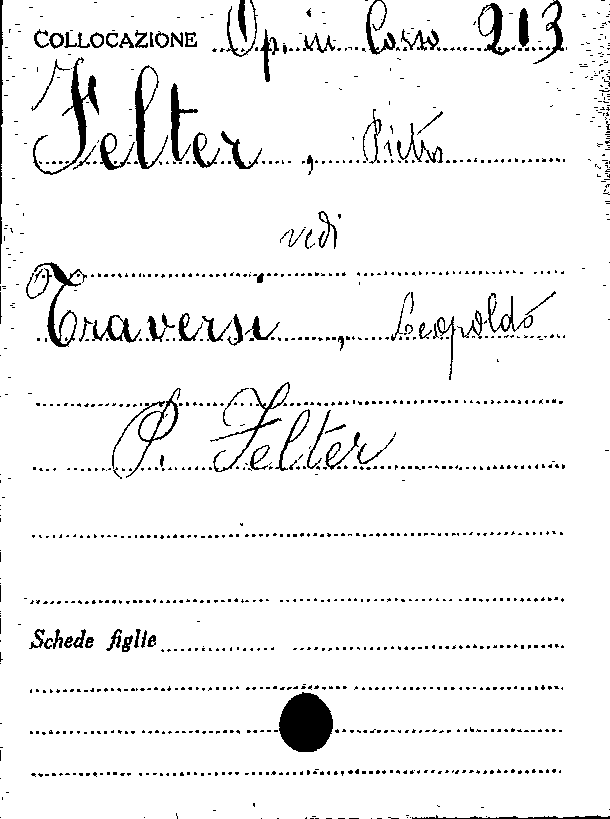 COLLOCAZIONE Op. in Corso 213
Felter, Pietro
vedi
Traversi, Leopoldo
P. Felter
Schede figlie